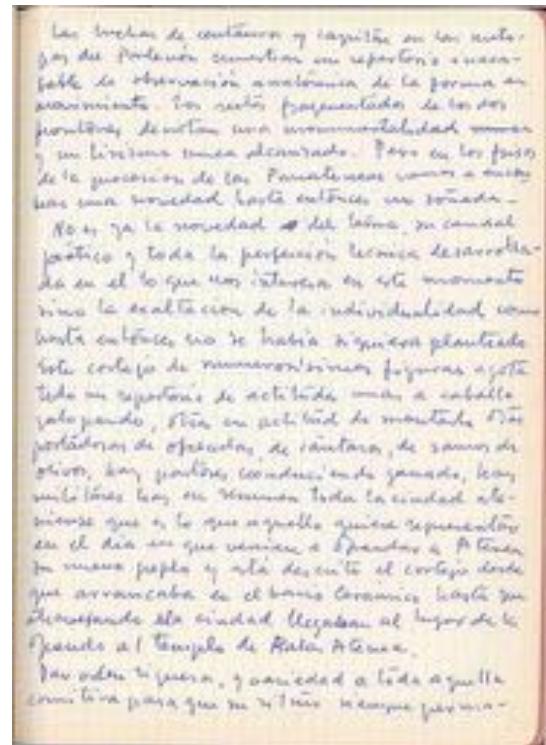 Las luchas de centauros y lapitas en las meto-
pas del Partenón muestran un repertorio inaca-
bable de observación anatómica de la forma en
movimiento. Los restos fragmentados de los dos
frontones denotan una monumentalidad
y un lirismo nunca alcanzado. Pero en los frisos
de la procesion de las Panateneas vamos a encon
trar una novedad hasta entónces no soñada.
No es ya la novedad del tema, su caudal
poético y toda la perfección técnica desarrolla-
da en el lo que nos interesa en este momento
sino la exaltacion de la individualidad como
hasta entónces no se habia siquiera planteado
Este cortejo de numerosisimas figuras agota
todo un repertorio de actitudes unas a caballo
galopando, otras en actitud de montarlo otras
portadoras de ofrendas, de cántaros, de ramos de
olivos, hay pastores conduciendo ganado, hay
militáres hay en resumen toda la ciudad ate-
niense que es lo que aquello quiere representar
en el dia en que venian a ofrendar a Atenea
su nuevo peplo y está descrito el cortejo desde
que arrancaba en el barrio Ceramico hasta que
atravesando la ciudad llegaban al lugar de la
ofrenda al templo de Palas Atenea.
Dar orden riguroso, y variedad a toda aquella
comitiva para que su ritmo siempre perma-